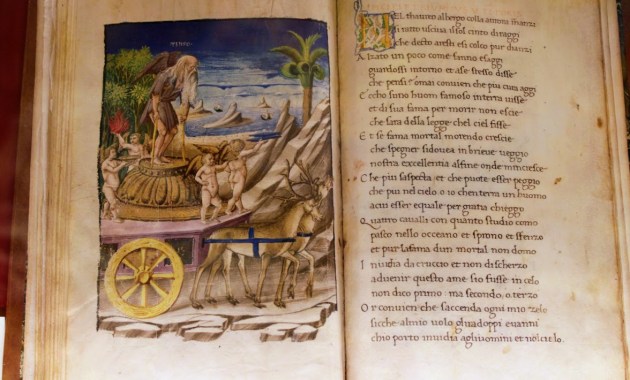 EL thauro albergo colla aurora inanzi
Si ratto uscíua il sol cinto di raggi
che decto aresti es colco pur dianzi
Alzato un poco come fanno esaggi
guardossi intorno et ase stesso disse
che pensi omai conuien che piu cura aggi
Eccho sutio huom famoso interra uisse
et di sua fama per morir non escie
che sara della legge chel ciel fisse
Et se fama mortal morendo crescie
che spegner sidouea in brieue ueggio
nostra excellentia alfine onde mincresce
Che piu saspecta et che puote esser peggio
che piu nel cielo o io chenterra un huomo
acui esser equale per gratia chieggio
Quatro caualli con quanto studio como
pasco nello oceano et sprono et sferzo
et pur lafama dun mortal non domo
Iniuria da cruccio et non discherzo
aduenir questo ame sio fusse in cielo
non dico primo ma secondo o terzo
Or conuien che saccenda ogni mio zelo
sicche almio uolo gluadoppi euanni
chio porto inuidia agliuomini et nolcielo.